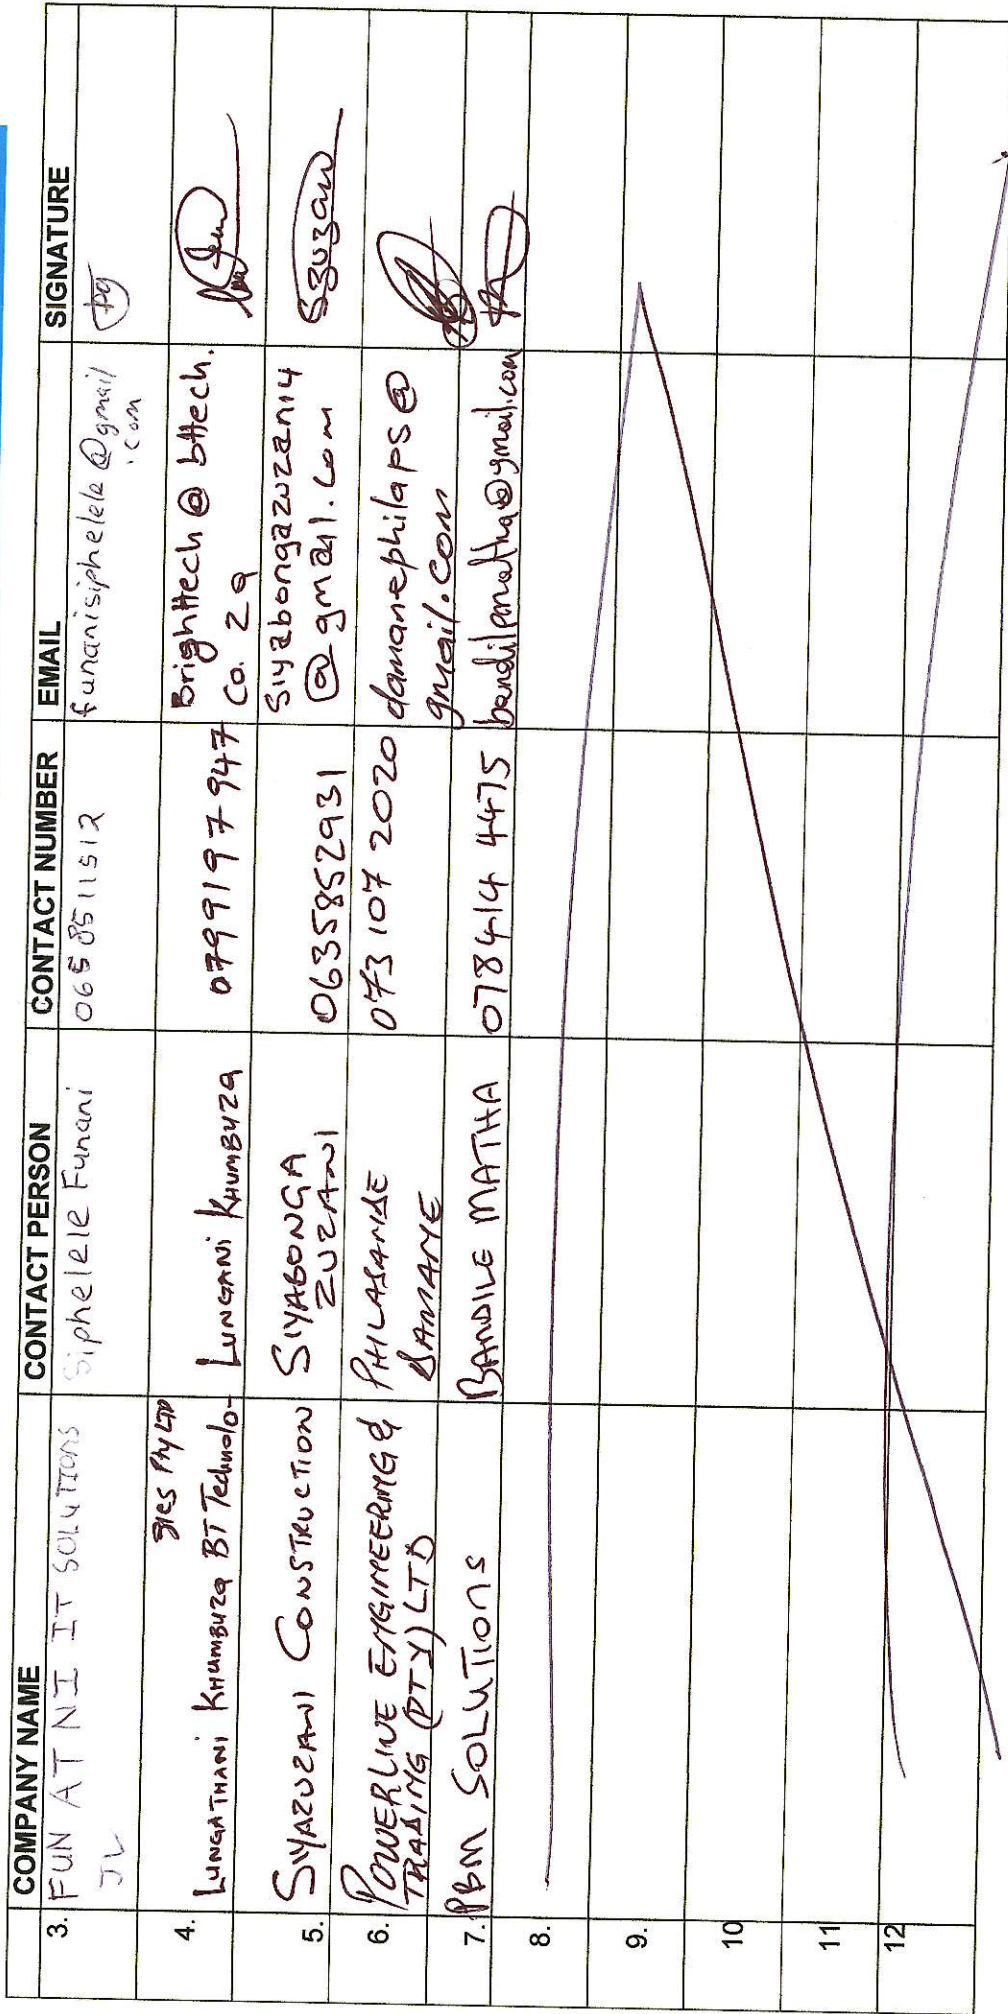 COMPANY NAME CONTACT PERSON CONTACT NUMBER EMAIL SIGNATURE
3. FUN AT NI IT SOLUTIONS Siphelele Funani 065 8511512 funanisiphelele@gmail
JV .com
gies Pty LTD
4. LUNGATHANI KHUMBUZA BT Technolo- LUNGANI KHUMBUZA 0799197947 Brighttech@bttech.
Co. Za
5. SIYAZUZANI CONSTRUCTION SIYABONGA 0635852931 Siyabongazuzani4
ZUZANI @gmail.com
6. POWERLINE ENGINEERING & PHILASANDE 073 107 2020 damanephilaps@
TRADING (PTY) LTD DAMANE gmail.com
7. PBM SOLUTIONS BANDILE MATHA 078414 4475 bandilematha@gmail.com
8.
9.
10
11
12